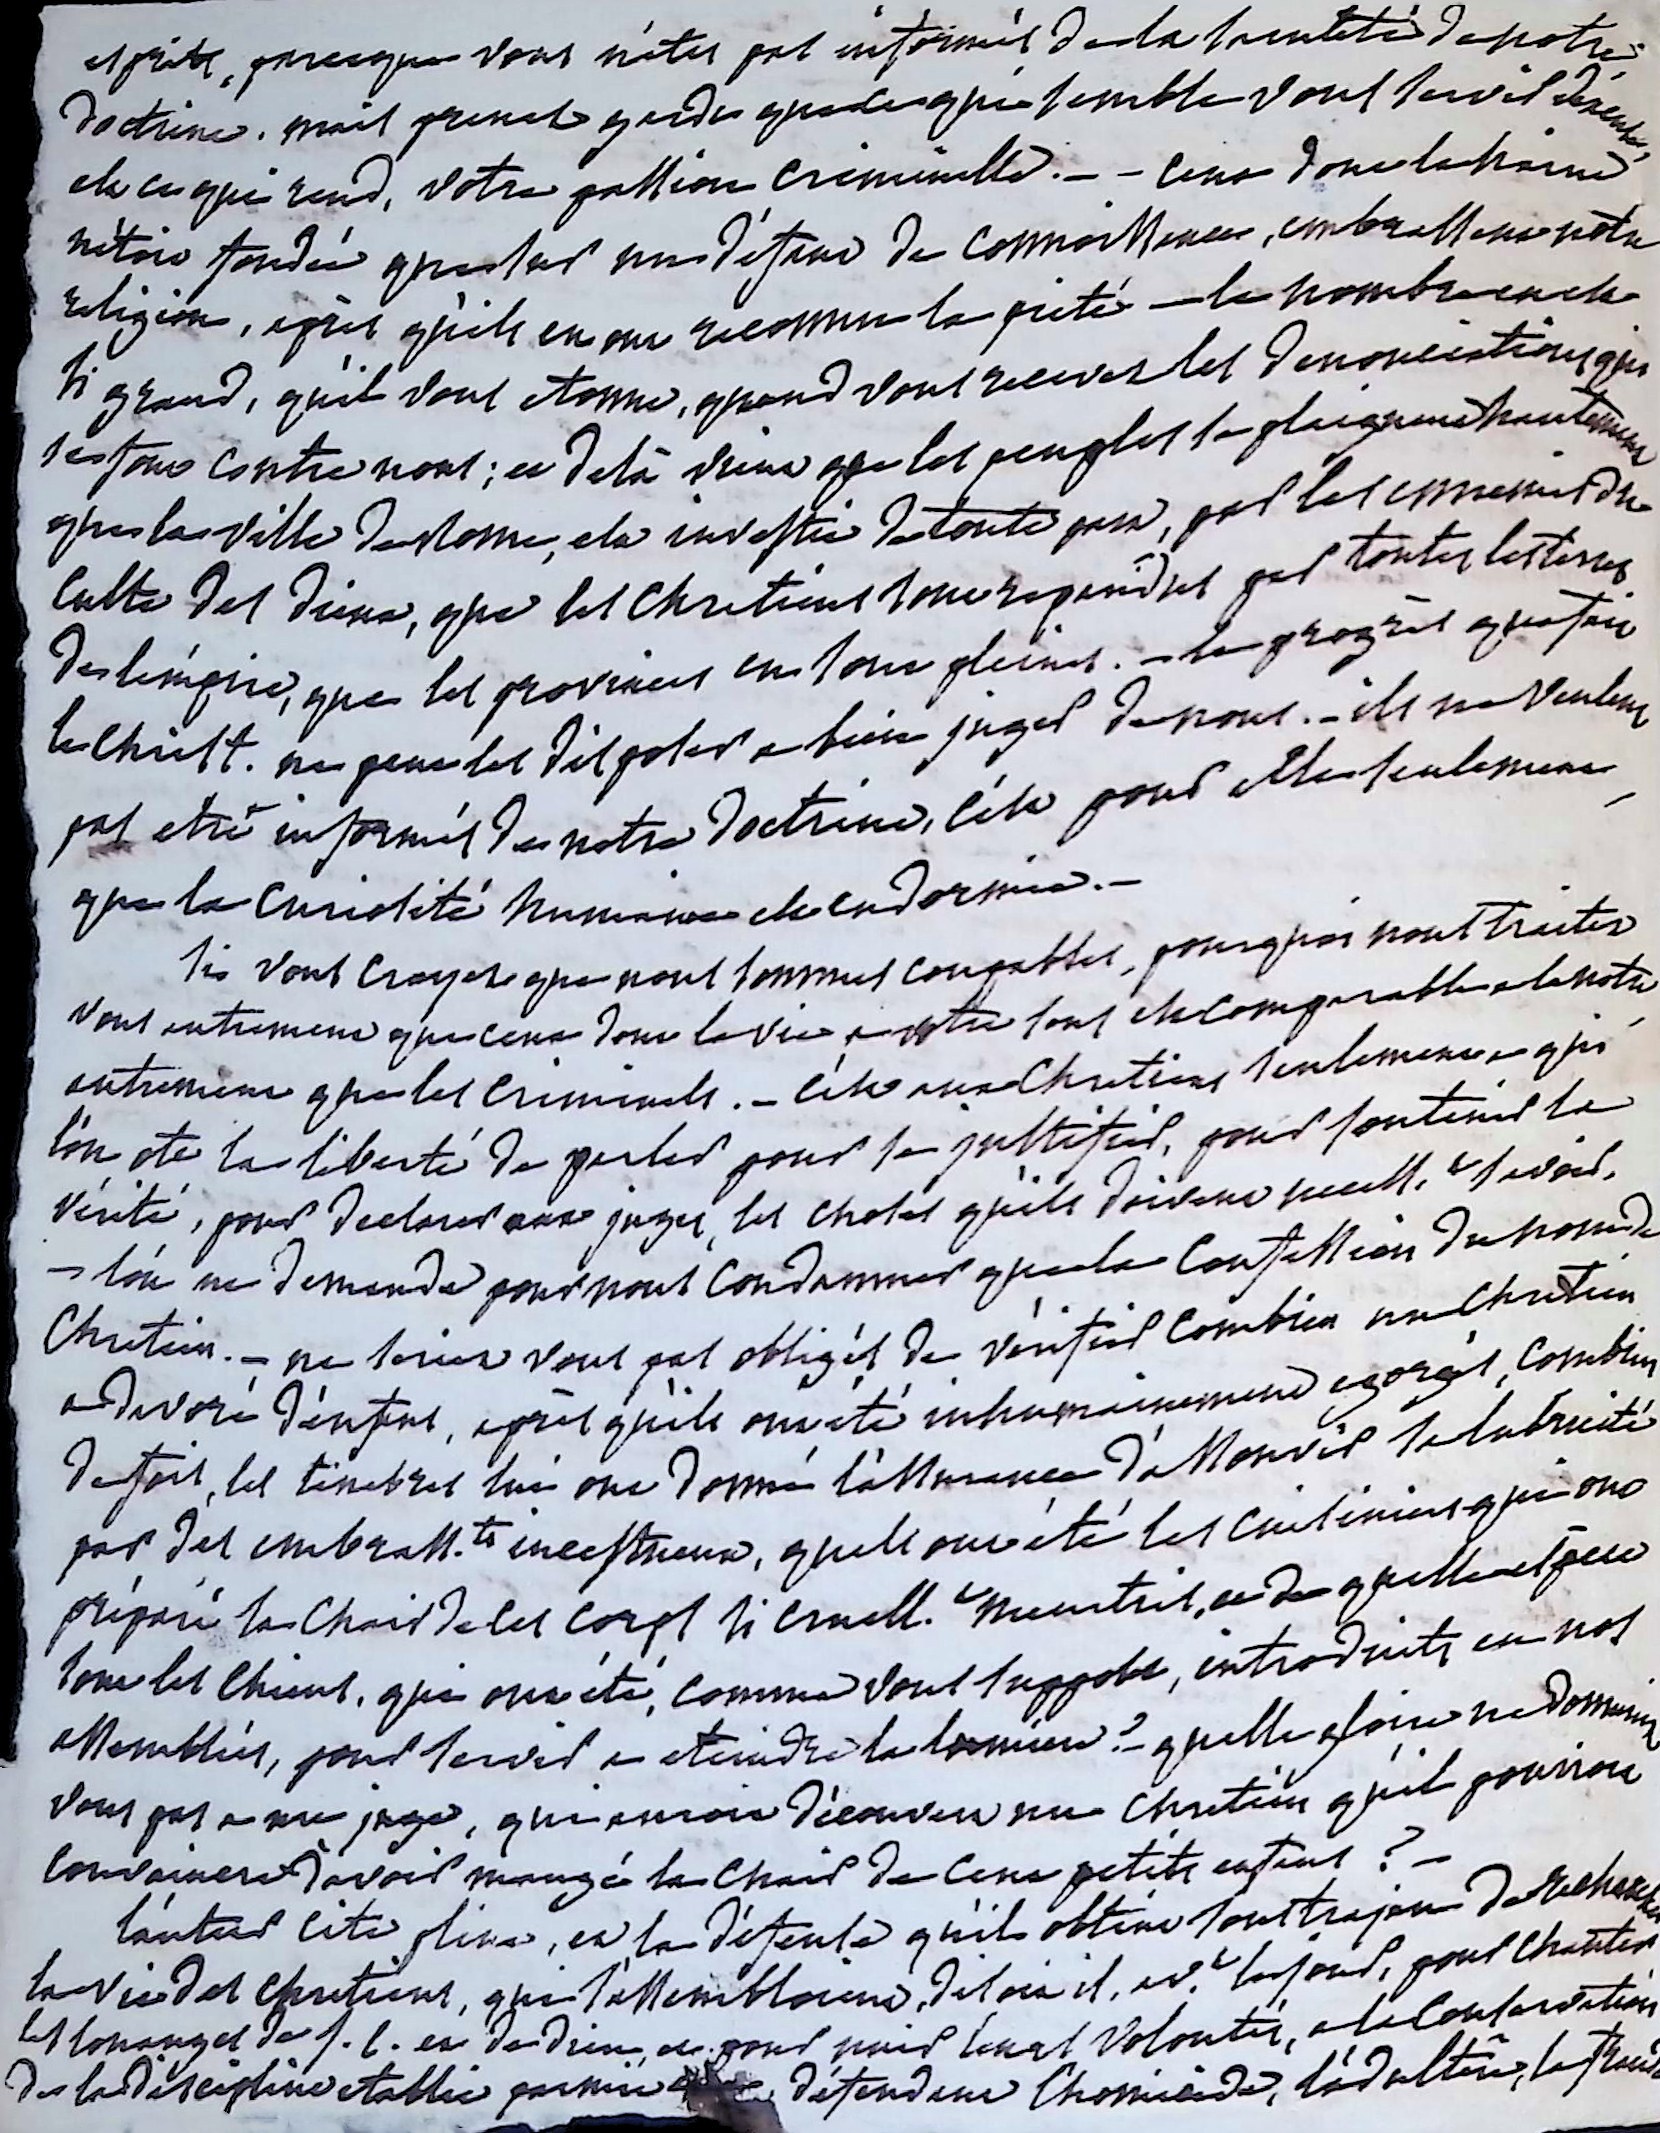 esprits, parceque vous n'êtes pas informés de la sainteté de notre
doctrine. mais prenez garde que ce qui semble vous servir d'excuse,
est ce qui rend, votre passion criminelle. - - ceux dont la haine
n'étoit fondée que sur un défaut de connoissance, embrassent notre
religion, après qu'ils en ont reconnu la piété - le nombre en est
si grand, qu'il vous etonne, quand vous recevez les denonciations qui
se font contre nous; et delà vient que les peuples se plaignent hautement
que la ville de Rome, est investie de toute part, par les ennemis du
culte des dieux, que les chretiens sont repandus par toutes les terres
de l'empire, que les provinces en sont pleines. - le progrès que fait
le Christ. ne peut les disposer a bien juger de nous. - ils ne veulent
pas etre informés de notre doctrine, c'est pour elle seulement
que la curiosité humaine est endormie. -
si vous croyez que nous sommes coupables, pourquoi nous traitez
vous autrement que ceux dont la vie a votre sens est comparable a la notre,
autrement que les criminels. - c'est aux Chretiens seulement a qui
l'on ote la liberté de parler pour se justifier, pour soutenir la
vérité, pour declarer aux juges, les choses qu'ils doivent necess.t savoir.
- l'on ne demande pour nous condamner que la confession du nom de
Chretien. - ne seriez vous pas obligés de vérifier combien un Chretien
a devoré d'enfans, après qu'ils ont été inhumainement egorgés, combien
de fois, les tenebres lui ont donné l'assurance d'assouvir sa lubricité
par des embrass.ts incestueux, quels ont été les cuisiniers qui ont
préparé la chair de ces corps si cruell.t meurtris, et de quelle espece
sont les chiens, qui ont été, comme vous supposez, introduits en nos
assemblées, pour servir a eteindre la lumiere? - quelle gloire ne donneriez
vous pas a un juge, qui auroit découvert un chretien qu'il pourroit
convaincre d'avoir mangé la chair de cent petits enfans? -
l'auteur cite pline, et la défense qu'il obtint sous trajan de rechercher
la vie des chretiens, qui s'assembloient, disoit il, av.t le jour, pour chanter
les louanges de j. C. et de dieu, et pour unir leurs volontés, a la conservation
de la discipline etablie parmi défendant l'homicide, l'adultère, la fraude